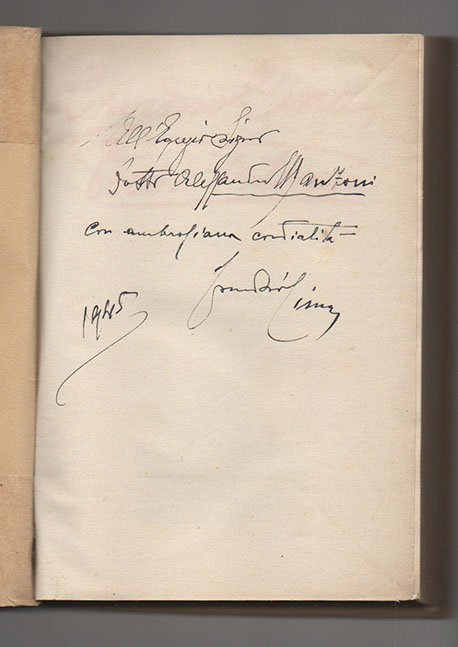 All'Egregio Signor
Dottor Alessandro Manzoni
con ambrosiana cordialità
Cima
1945